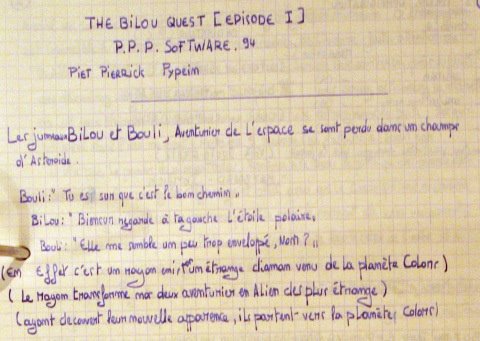 THE BiLOU QUEST [EPISODE I]
P.P.P. SOFTWARE. 94
PiET PiERRiCK Pypein
Les jumeaux BiLou et Bouli, Aventurier de L'espace se sont perdu dans un champs
d'Asteroide.
Bouli: "Tu es sur que c'est le bon chemin"
BiLou: "Biensur regarde à ta gauche L'étoile polaire"
Bouli: "Elle me semble un peu trop enveloppé, Nom ?"
(En Effet c'est un rayon emis un étrange diaman venu de la planète Colors)
(Le rayon transforme nos deux aventurier en Alien des plus étrange)
(ayant decouvert leur nouvelle apparence, ils partent vers la planète Colors)